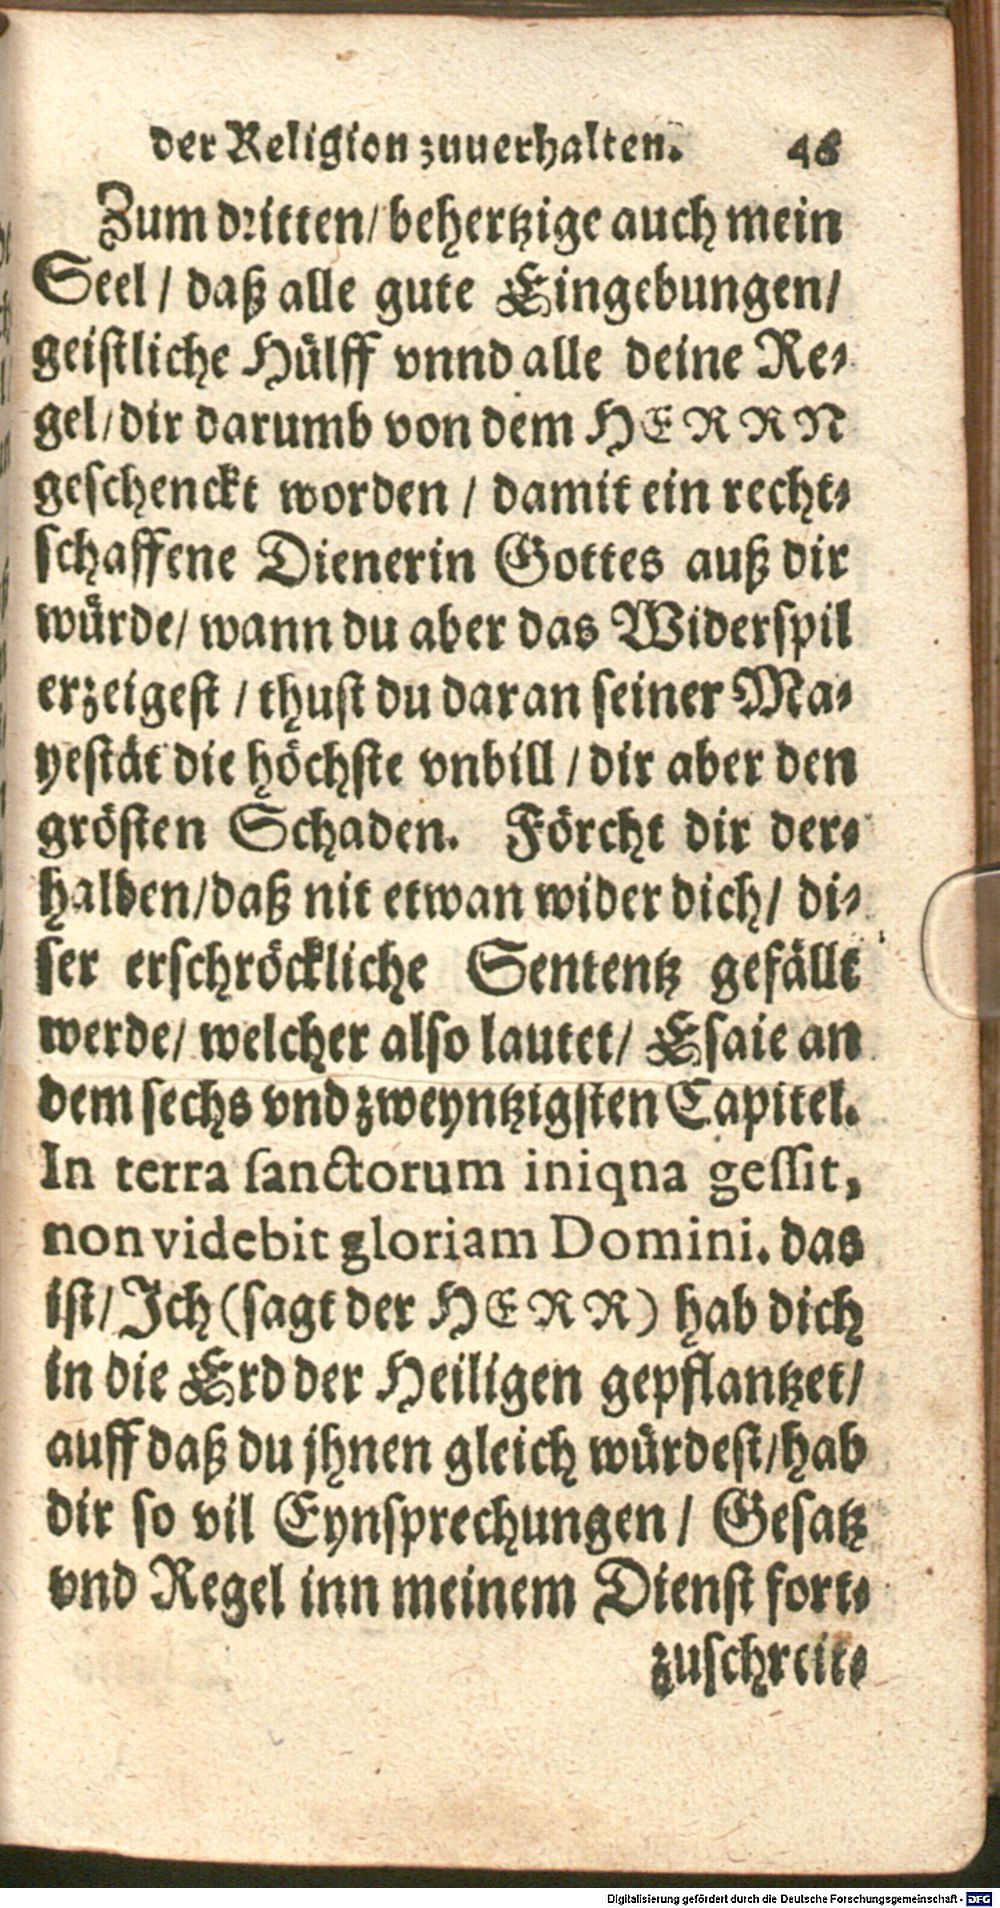 der Religion zuuerhalten. 46
Zum dritten/ behertzige auch mein
Seel / daß alle gute Eingebungen/
geistliche Hülff vnnd alle deine Re-
gel/ dir darumb von dem HERRN
geschenckt worden / damit ein recht-
schaffene Dienerin Gottes auß dir
würde/ wann du aber das Widerspil
erzeigest / thust du daran seiner Ma-
yestät die höchste vnbill / dir aber den
grösten Schaden. Förcht dir der-
halben/ daß nit etwan wider dich/ di-
ser erschröckliche Sententz gefällt
werde/ welcher also lautet/ Esaie an
dem sechs vnd zweyntzigsten Capitel.
In terra sanctorum iniqna gessit,
non videbit gloriam Domini. das
ist/ Ich (sagt der HERR) hab dich
in die Erd der Heiligen gepflantzet/
auff daß du jhnen gleich würdest/ hab
dir so vil Eynsprechungen / Gesatz
vnd Regel inn meinem Dienst fort-
zuschreit-
Digitalisierung gefördert durch die Deutsche Forschungsgemeinschaft - DFG